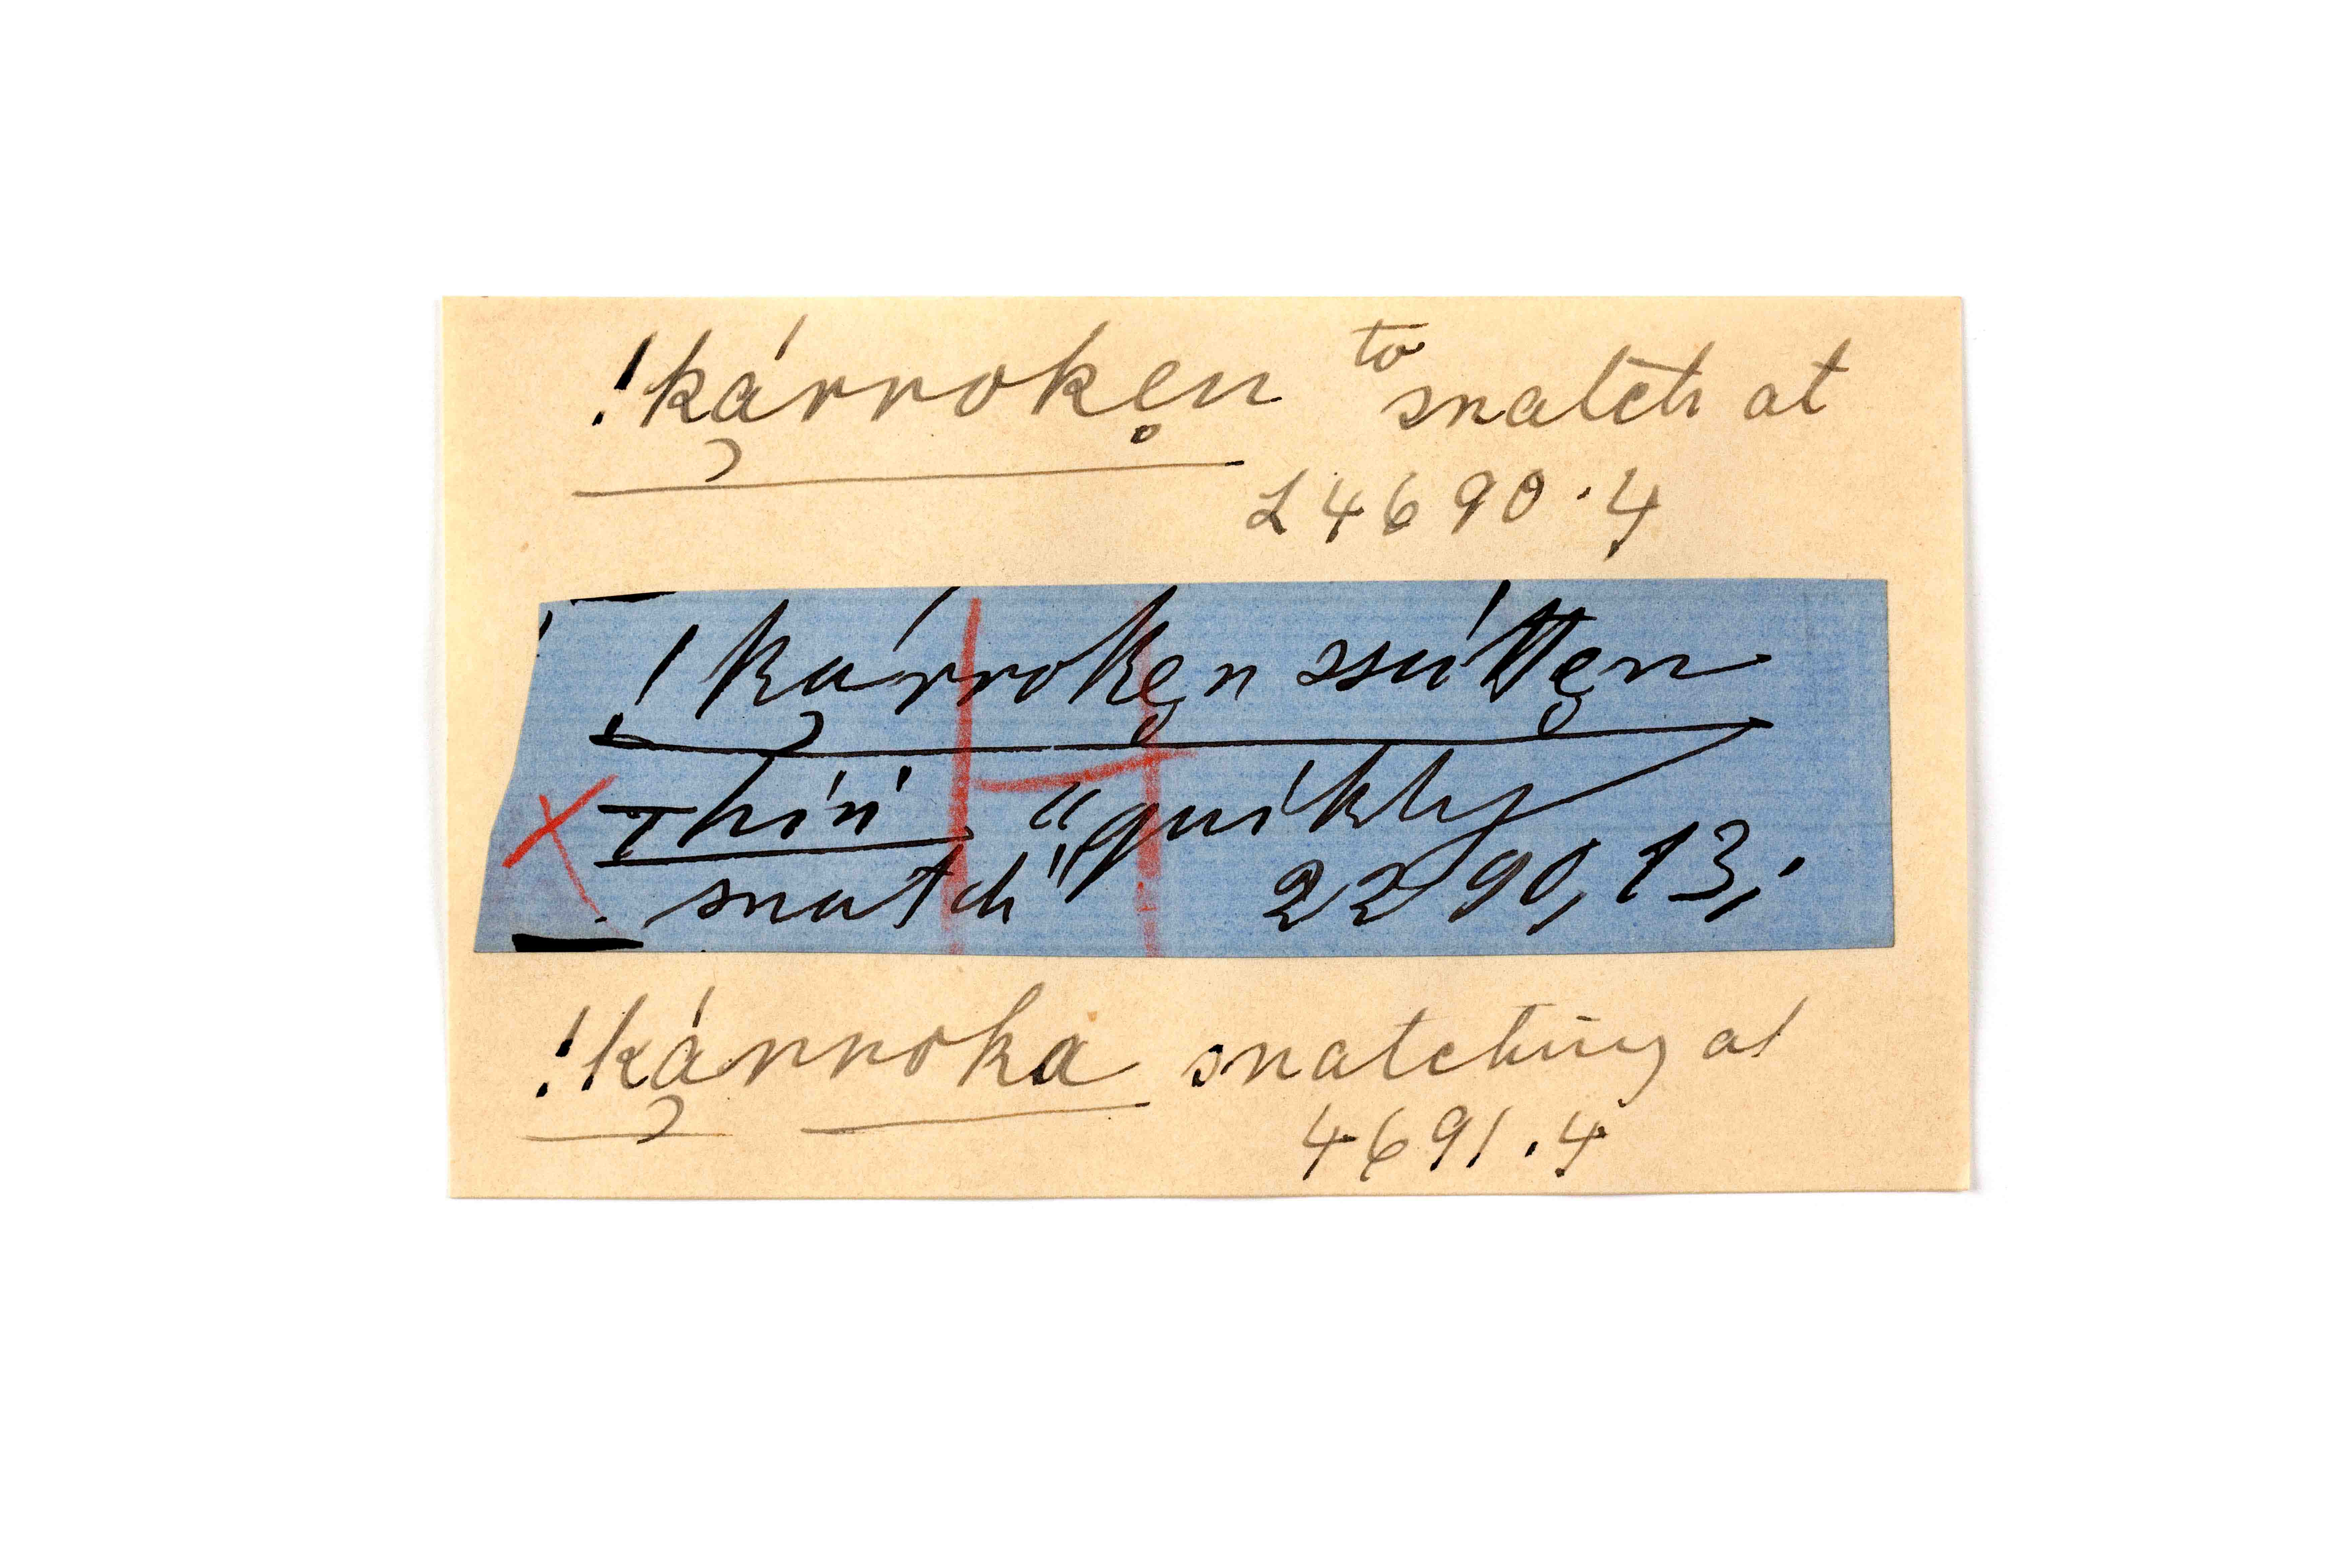 !ká̡rroken̥ to snatch at
L4690.4
!ká̡rroken̥ ssútten̥
Thíń "quikly
snatch" 2290,13,
!ká̡rroka snatching at
4691.4
X
H